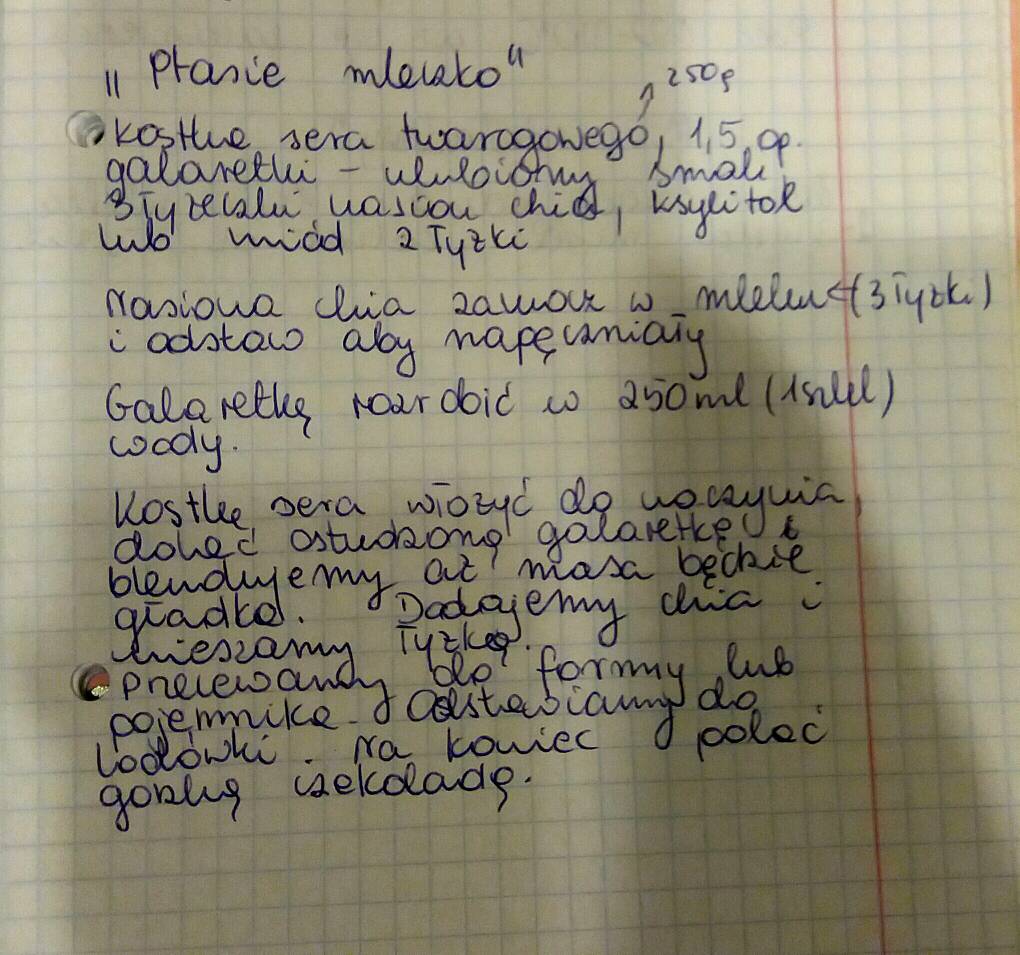 „Ptasie mleczko"
250g
Kostkę sera twarogowego, 1,5 op.
galaretki - ulubiony smak,
3 łyżeczki nasion chia, ksylitol
lub miód 2 łyżki
Nasiona chia zamocz w mleku (3 łyżki)
i odstaw aby napęczniały
Galaretkę rozrobić w 250ml (1szkl)
wody.
Kostkę sera włożyć do naczynia,
dolać ostudzoną galaretkę i
blendujemy aż masa będzie
gładka. Dodajemy chia i
mieszamy łyżką.
Przelewamy do formy lub
pojemnika. Odstawiamy do
lodówki. Na koniec polać
gorzką czekoladą.